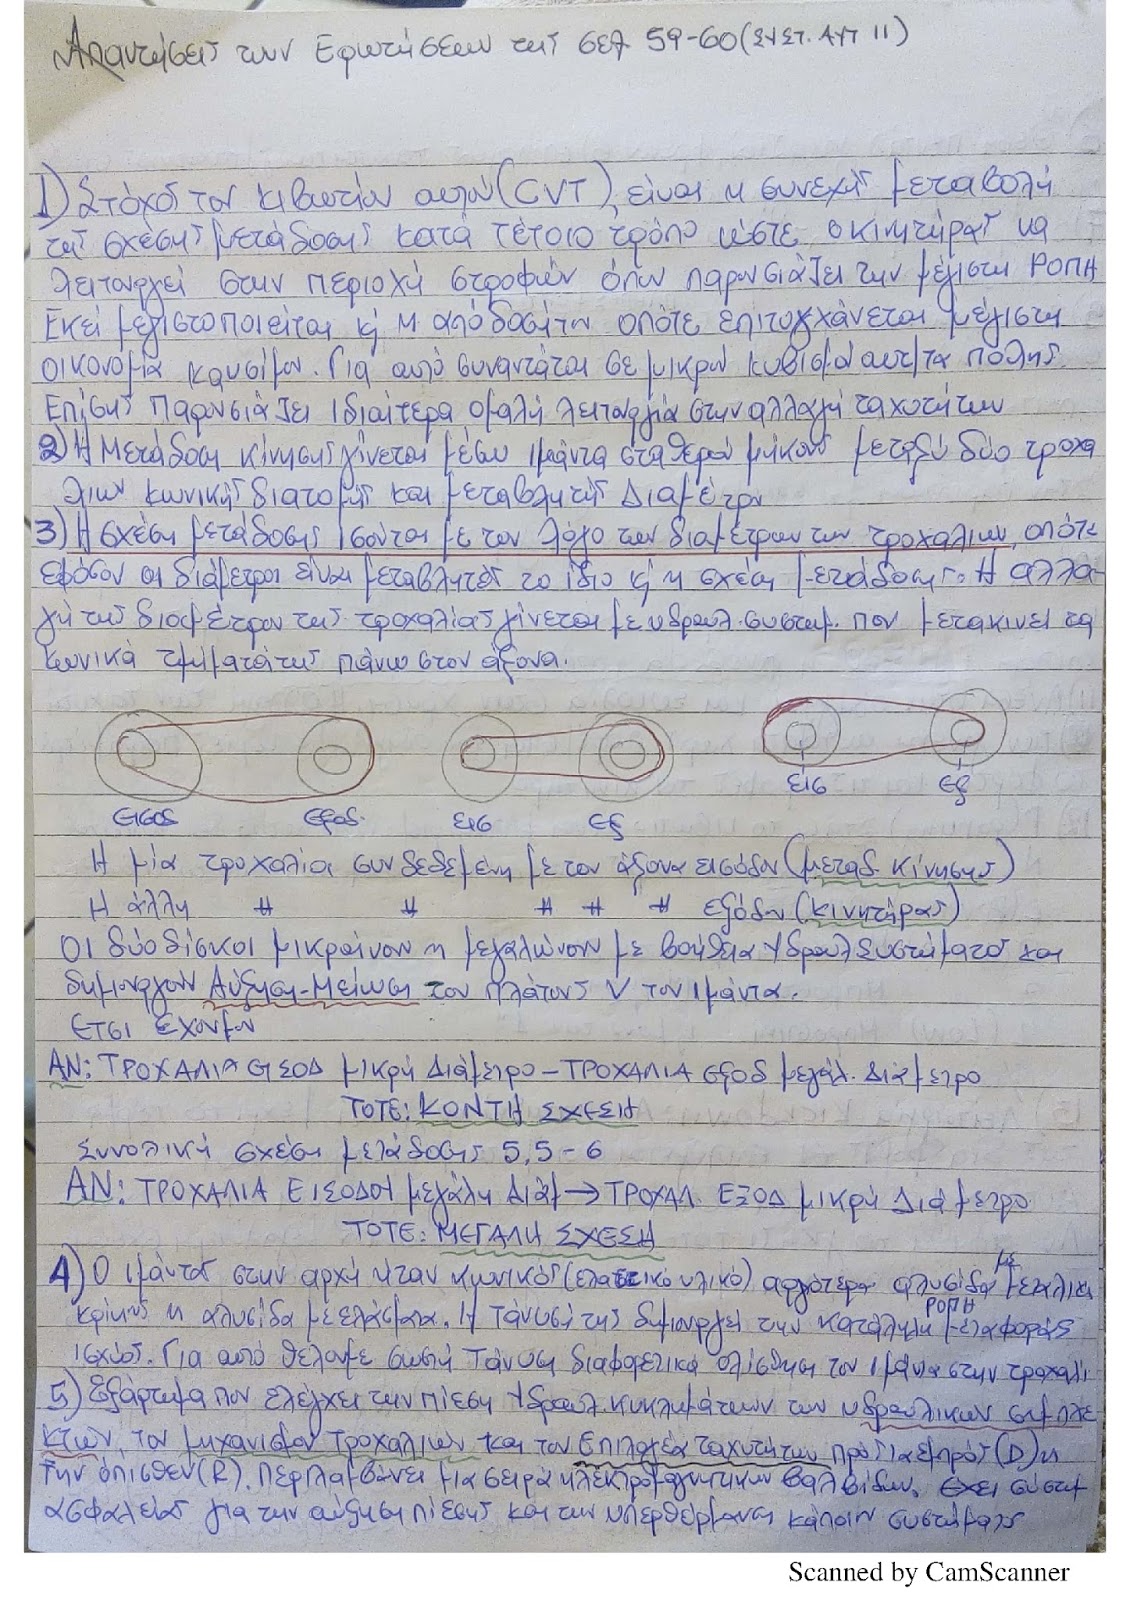 Απαντήσεις των Ερωτήσεων της σελ 59-60 (ΣΥΣΤ. ΑΥΤ ΙΙ)
1) Στόχος των κιβωτίων αυτών (CVT), είναι η συνεχής μεταβολή
της σχέσης μετάδοσης κατά τέτοιο τρόπο ώστε ο κινητήρας να
λειτουργεί στην περιοχή στροφών όπου παρουσιάζει την μέγιστη ΡΟΠΗ
Εκεί μεγιστοποιείται κ' η απόδοση του οπότε επιτυγχάνεται μέγιστη
οικονομία καυσίμου. Για αυτό συναντάται σε μικρού κυβισμού αυτ/τα πόλης.
Επίσης παρουσιάζει ιδιαίτερα ομαλή λειτουργία στην αλλαγή ταχυτήτων
2) Η Μετάδοση κίνησης γίνεται μέσω ιμάντα σταθερού μήκους μεταξύ δύο τροχα
λιων κωνικής διατομής και μεταβλητής Διαμέτρου
3) Η σχέση μετάδοσης ισούται με τον λόγο των διαμέτρων των τροχαλιων, οπότε
εφόσον οι διάμετροι είναι μεταβλητές το ίδιο κ' η σχέση μετάδοσης. Η αλλα-
γή της διαμέτρου της τροχαλίας γίνεται με υδραυλ. συστημ. που μετακινεί τα
κωνικά τμήματά της πάνω στον άξονα.
εισοδ εξοδ. εισ εξ εισ εξ
Η μία τροχαλία συνδεδεμένη με τον άξονα εισόδου (μεταδ. κίνησης)
Η άλλη // // // // // εξόδου (κινητήρας)
Οι δύο δίσκοι μικραίνουν η μεγαλώνουν με βοήθεια Υδραυλ Συστήματος και
δημιουργούν Αύξηση-Μείωση του πλάτους V του ιμάντα.
Ετσι έχουμε
ΑΝ: ΤΡΟΧΑΛΙΑ ΕΙΣΟΔ μικρή Διάμετρο – ΤΡΟΧΑΛΙΑ εξοδ μεγάλ. Διάμετρο
ΤΟΤΕ: ΚΟΝΤΗ ΣΧΕΣΗ
Συνολική σχέση μετάδοσης 5,5 – 6
ΑΝ: ΤΡΟΧΑΛΙΑ ΕΙΣΟΔΟΥ μεγάλη Διάμ → ΤΡΟΧΑΛ. ΕΞΟΔ μικρή Διάμετρο.
ΤΟΤΕ: ΜΕΓΑΛΗ ΣΧΕΣΗ
4) Ο ιμάντας στην αρχή ήταν κωνικός (ελαστικό υλικό) αργότερα αλυσίδα με μεταλικ
κρίκους η αλυσίδα με ελάσματα. Η τάνυσή της δημιουργεί την κατάλληλη ΡΟΠΗ μεταφοράς
ισχύος. Για αυτό θέλουμε σωστή τάνυση διαφορετικά ολίσθηση του ιμάντα στην τροχαλί
5) Εξάρτημα που ελέγχει την πίεση Υδραυλ. κυκλωμάτων των υδραυλικών συμπλε
κτών, του μηχανισμού τροχαλιών και του Επιλογέα ταχυτήτων πρός τα εμπρός (D) η
την όπισθεν (R). Περιλαμβάνει μια σειρά ηλεκτρομαγνητικων βαλβίδων. έχει συστημ
ασφαλείας για την αύξηση πίεσης και την υπερθέρμανση κάποιου συστήματος
Scanned by CamScanner